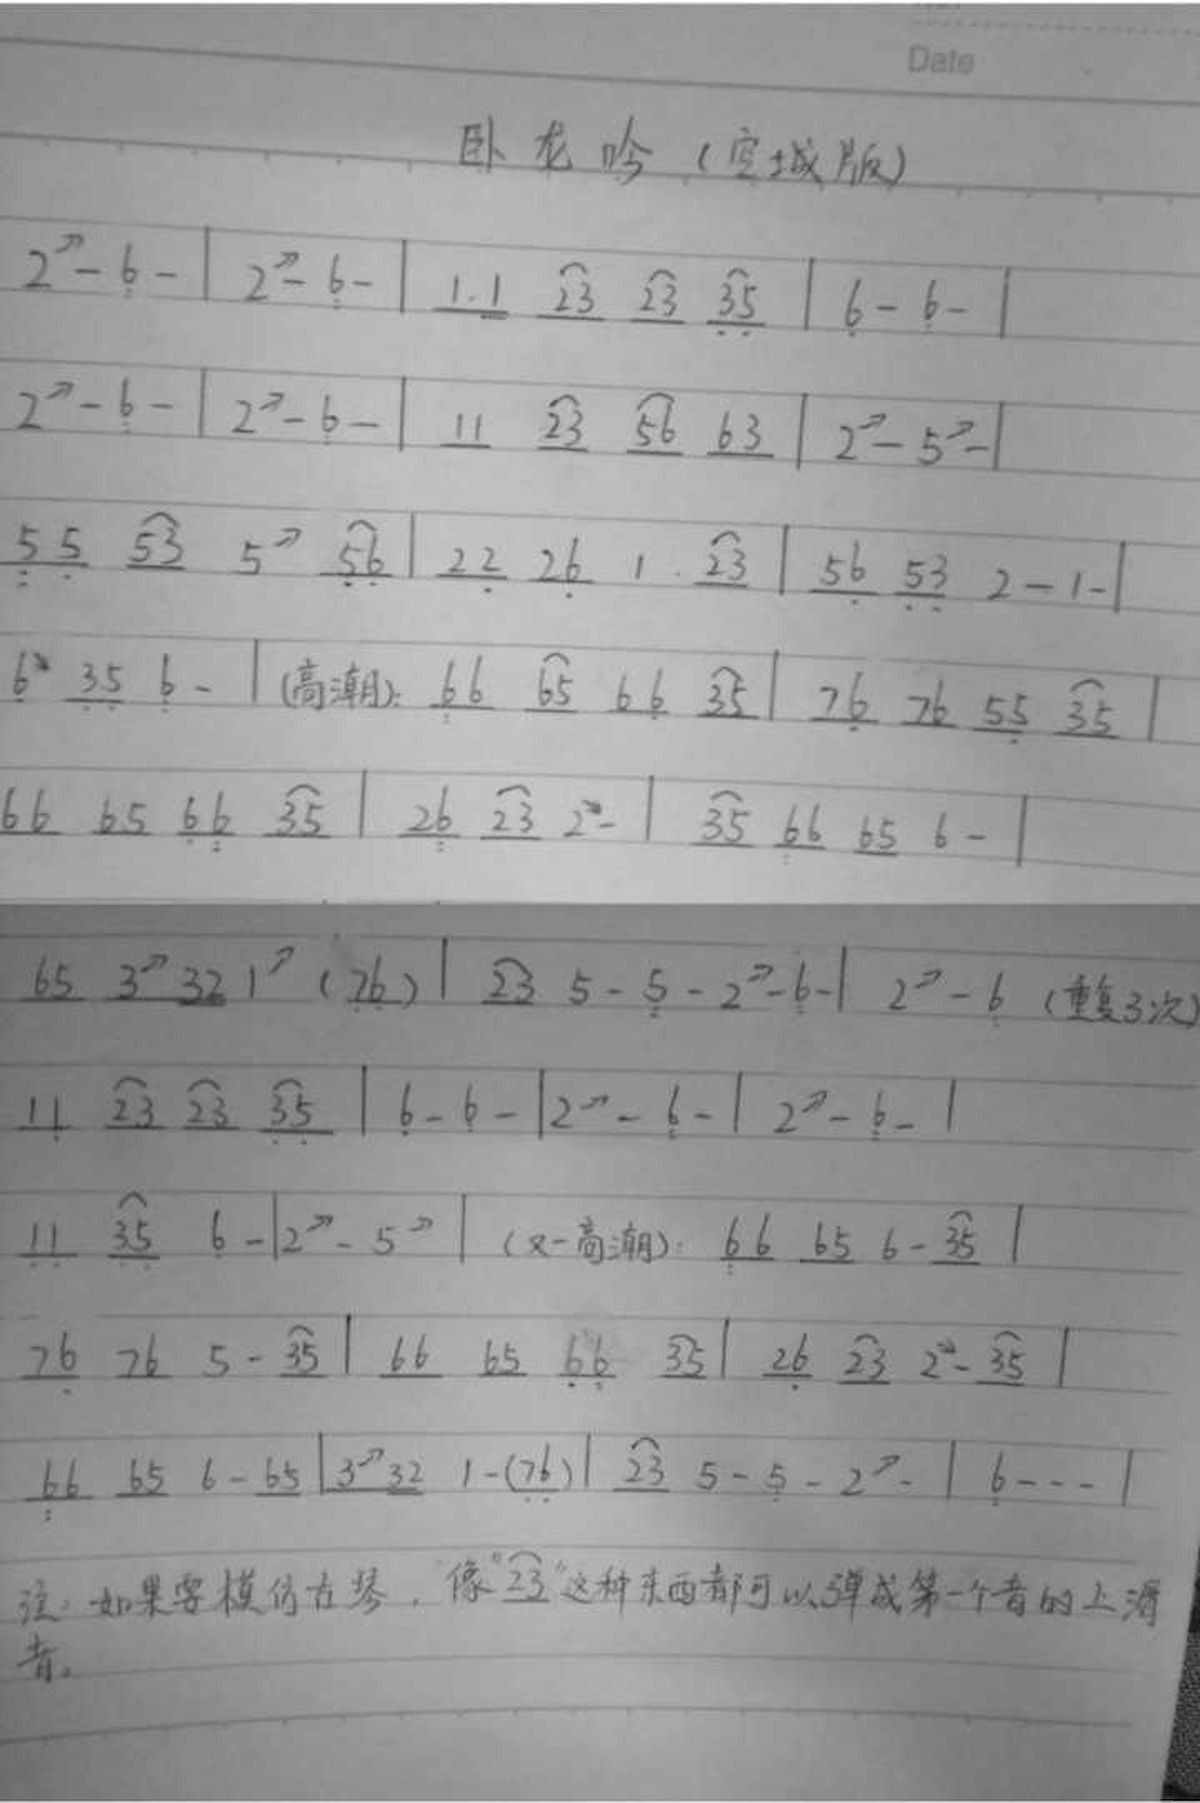 Date
卧龙吟（空城版）
2↗ - 6 - | 2↗ - 6 - | 1.1 23 23 35 | 6 - 6 - |
2↗ - 6 - | 2↗ - 6 - | 11 23 56 63 | 2↗ - 5↗ - |
55 53 5↗ 56 | 22 26 1 . 23 | 56 53 2 - 1 - |
6↘ 35 6 - | (高潮): 66 65 66 35 | 76 76 55 35 |
66 65 66 35 | 26 23 2↘ - | 35 66 65 6 - |
65 3↗ 32 1↗ (76) | 23 5 - 5 - 2↗ - 6 - | 2↗ - 6 (重复3次)
11 23 23 35 | 6 - 6 - | 2↗ - 6 - | 2↗ - 6 - |
11 35 6 - | 2↗ - 5↗ | (又一高潮): 66 65 6 - 35 |
76 76 5 - 35 | 66 65 66 35 | 26 23 2↘ - 35 |
66 65 6 - 65 | 3↗ 32 1 - (76) | 23 5 - 5 - 2↗ - | 6 - - - |
注：如果要模仿古琴，像"23"这种东西都可以弹成第一个音的上滑
音。